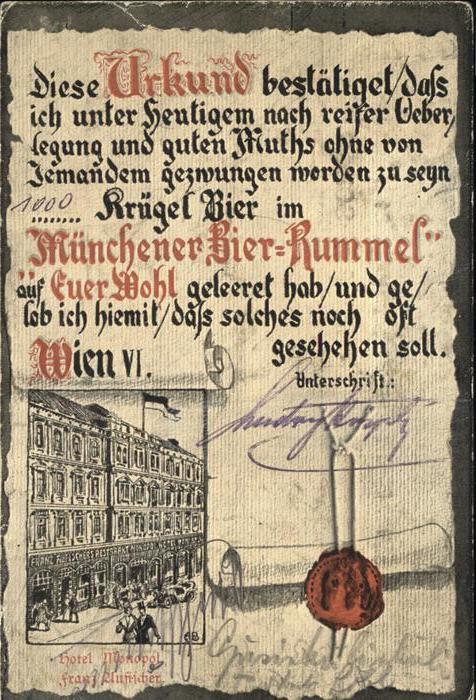 Diese Urkund bestätiget/daſs
ich unter Heutigem nach reifer Ueber/
legung und guten Muths ohne von
Jemandem gezwungen worden zu seyn
1000 Krügel Bier im
"Münchener Bier=Rummel"
auf Euer Wohl geleeret hab/und ge/
lob ich hiemit/daſs solches noch oft
Wien VI. geschehen soll.
Unterschrift.:
Hotel Monopol
Franz Aufischer